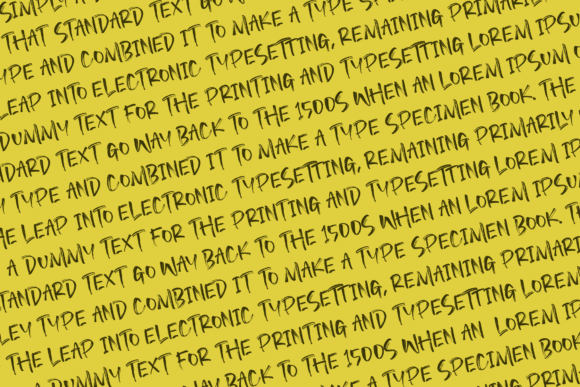 SIMPLY A
THAT STANDARD TEXT GO
YPE AND COMBINED IT TO MAKE A TYPE
LEAP INTO ELECTRONIC TYPESETTING, REMAINING PRIMARIL
DUMMY TEXT FOR THE PRINTING AND TYPESETTING LOREM IPSU
DARD TEXT GO WAY BACK TO THE 1500S WHEN AN LOREM IPSUM
Y TYPE AND COMBINED IT TO MAKE A TYPE SPECIMEN BOOK. THE
HE LEAP INTO ELECTRONIC TYPESETTING, REMAINING PRIMARILY
A DUMMY TEXT FOR THE PRINTING AND TYPESETTING LOREM IP
TANDARD TEXT GO WAY BACK TO THE 1500S WHEN AN LOREM IPSU
LEY TYPE AND COMBINED IT TO MAKE A TYPE SPECIMEN BOOK. T
THE LEAP INTO ELECTRONIC TYPESETTING, REMAINING PRIMARI
A DUMMY TEXT FOR THE PRINTING AND TYPESETTING LOREM
WAY BACK TO THE 1500S WHEN AN LOREM IPS
MAKE A TYPE SPECIMEN BOOK
REMAINING PRIM